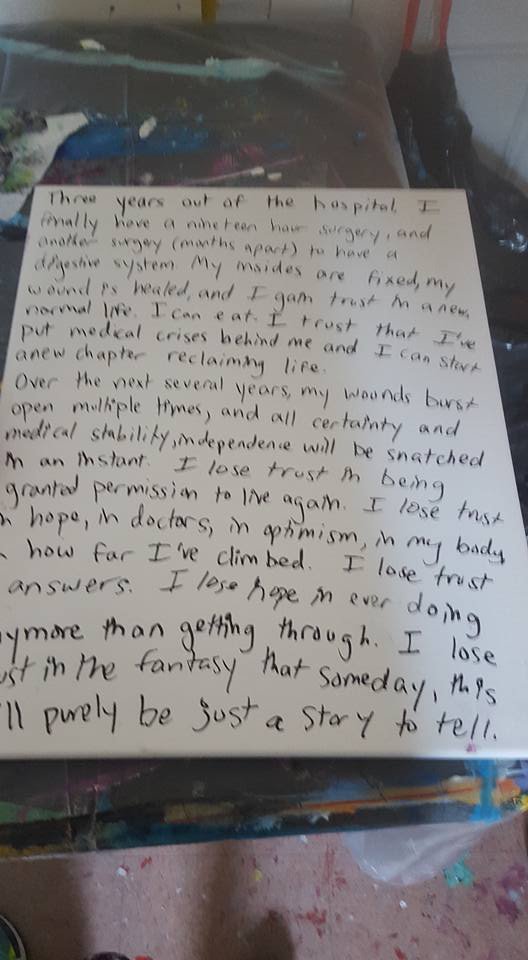 Three years out of the hospital, I
finally have a nineteen hour surgery, and
another surgery (months apart) to have a
digestive system. My insides are fixed, my
wound is healed, and I gain trust in a new,
normal life. I can eat. I trust that I've
put medical crises behind me and I can start
anew chapter reclaiming life.
Over the next several years, my wounds burst
open multiple times, and all certainty and
medical stability, independence will be snatched
in an instant. I lose trust in being
granted permission to live again. I lose trust
hope, in doctors, in optimism, in my body
how far I've climbed. I lose trust
answers. I lose hope in ever doing
ymore than getting through. I lose
ust in the fantasy that someday, this
'll purely be just a story to tell.